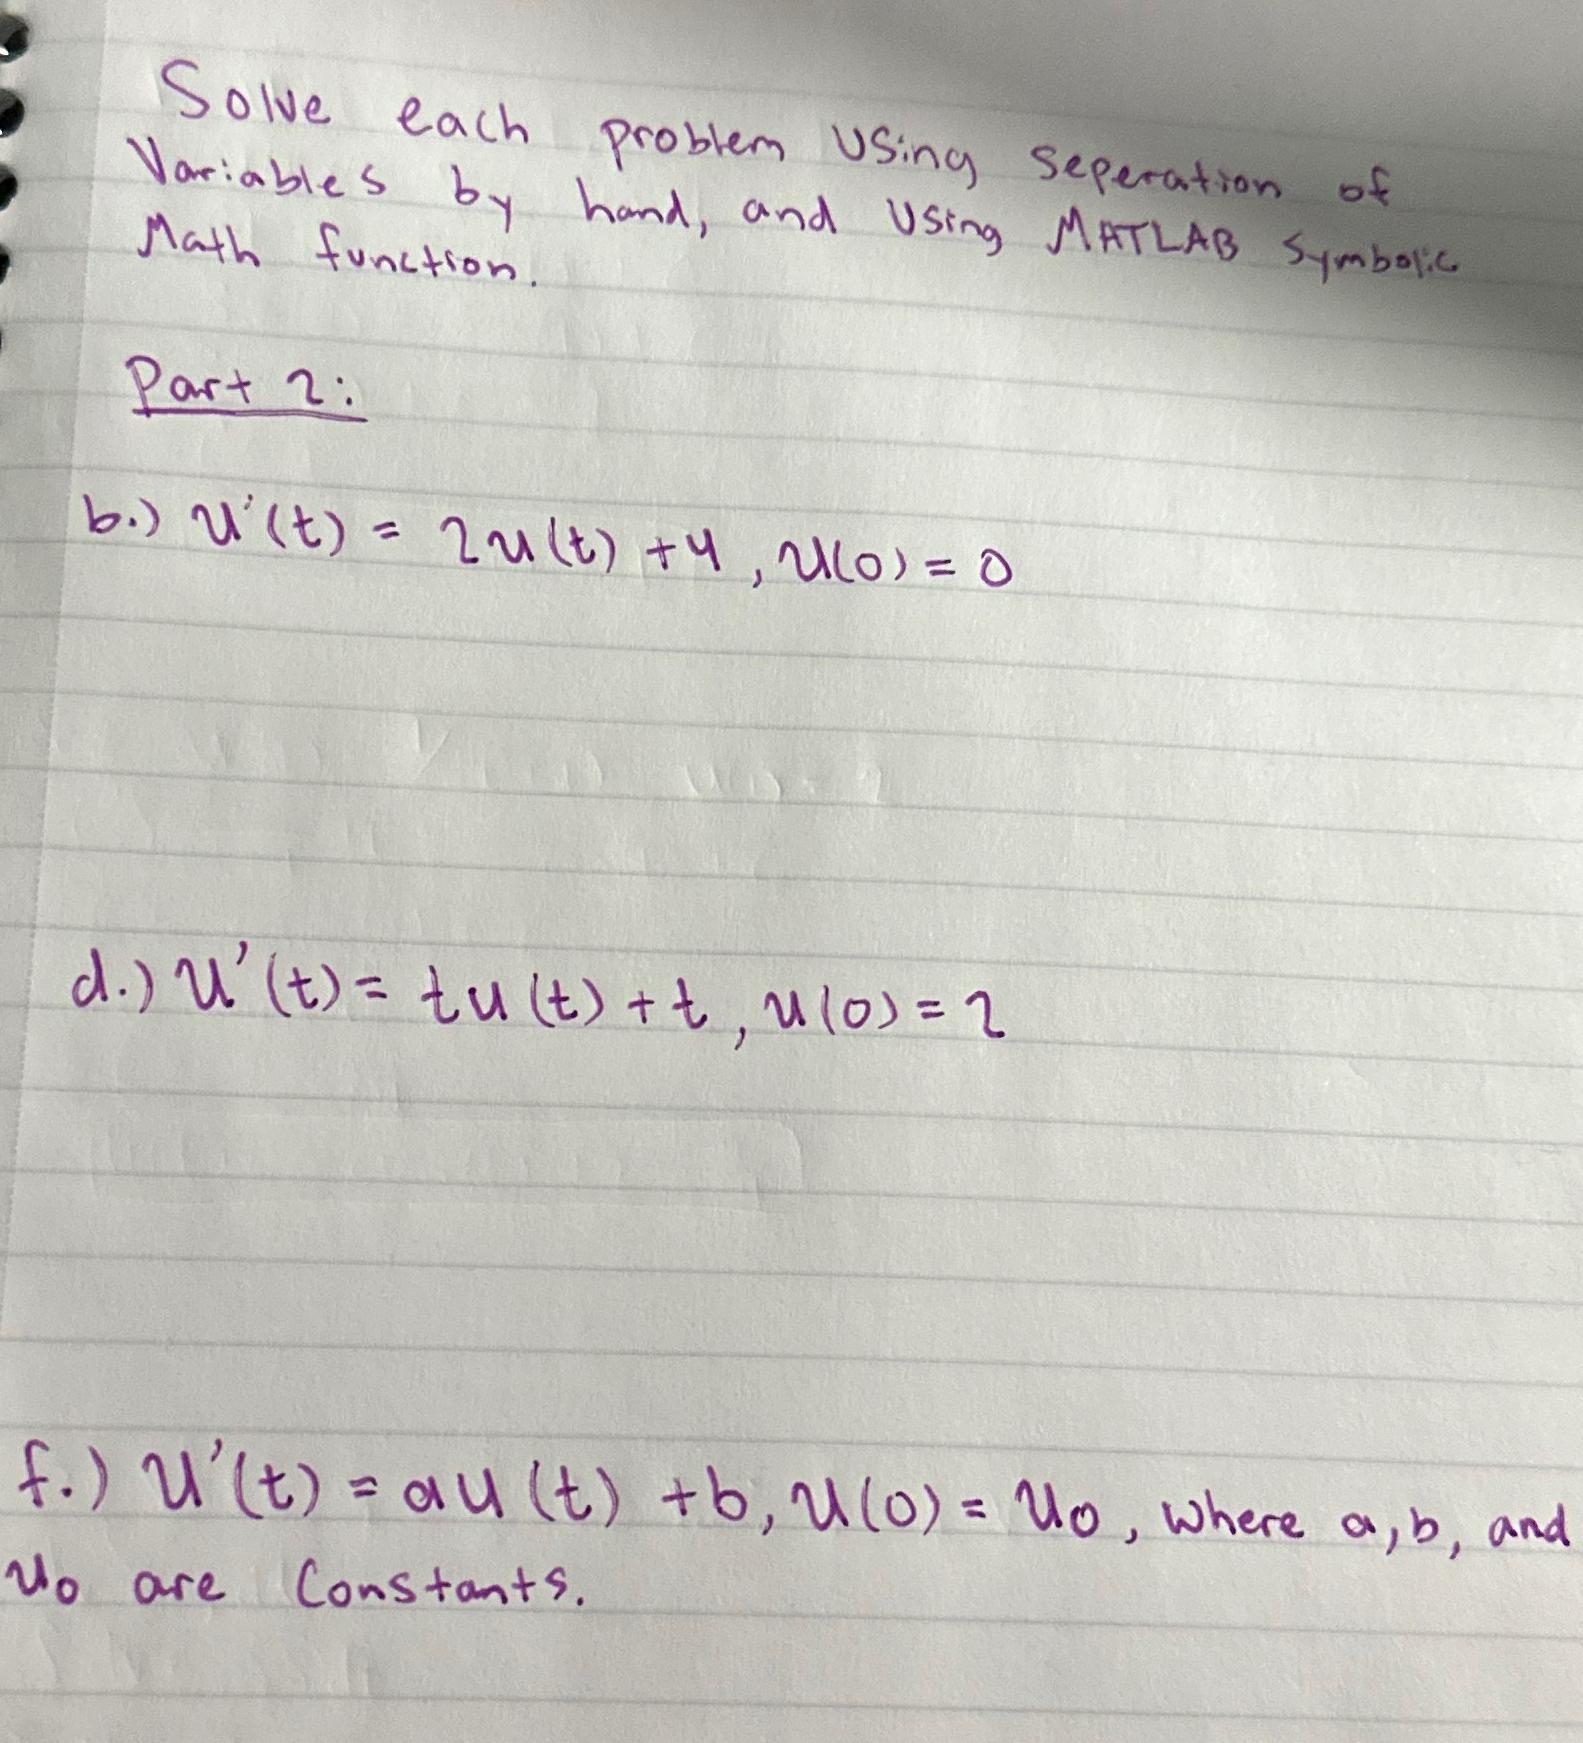 Solve each problem using seperation of
Variables by hand, and using MATLAB Symbolic
Math function.
Part 2:
b.) u'(t) = 2u(t) + 4, u(0) = 0
d.) u'(t) = tu(t) + t, u(0) = 2
f.) u'(t) = au(t) + b, u(0) = u0, where a, b, and
u0 are constants.